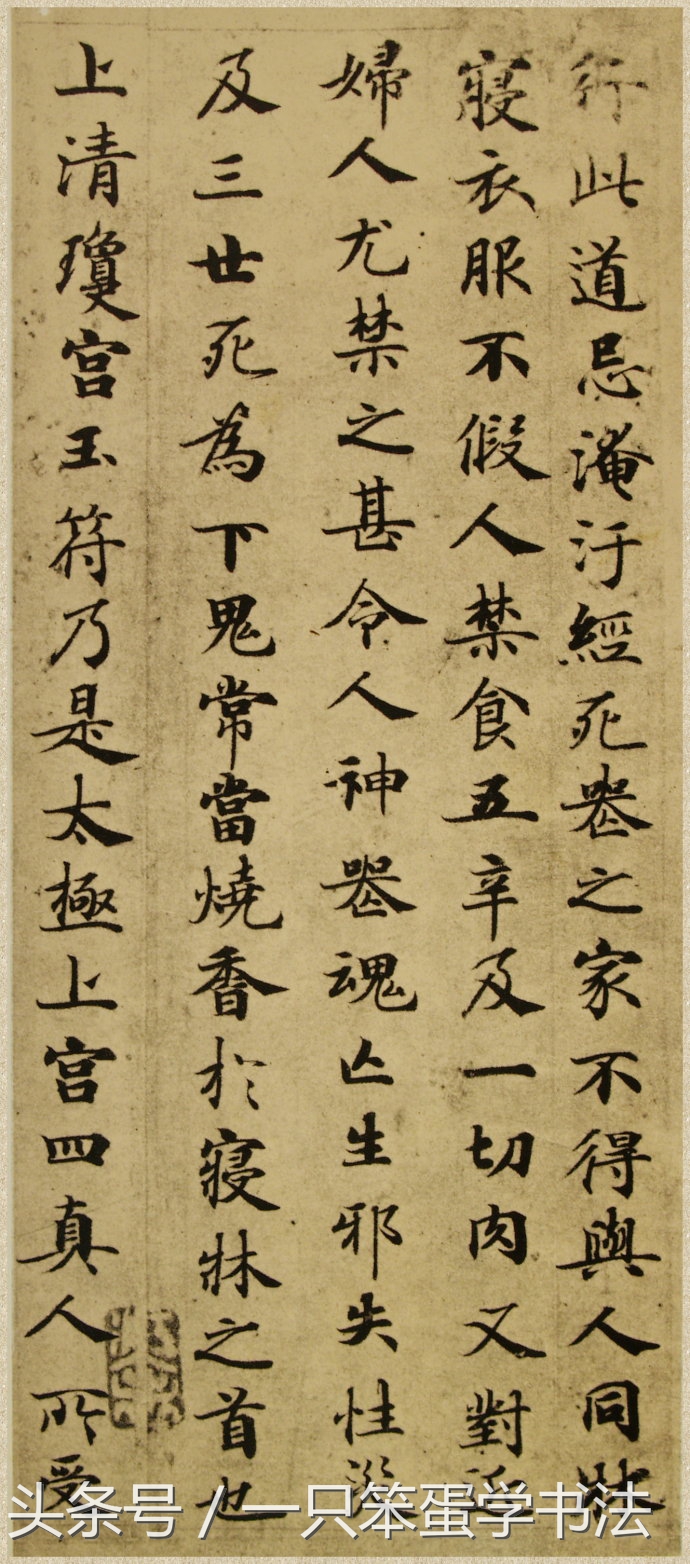 行此道忌淹汙經死喪之家不得與人同牀
寢衣服不假人禁食五辛及一切肉又對近
婦人尤禁之甚令人神喪魂亡生邪失性災
及三世死為下鬼常當燒香於寢牀之首也
上清瓊宮玉符乃是太極上宮四真人所受
头条号 / 一只笨蛋学书法